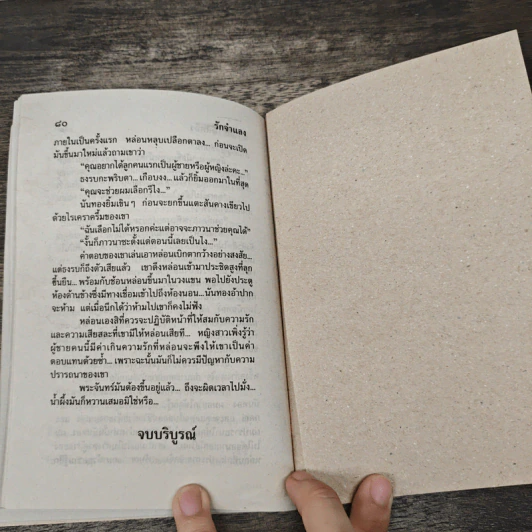 ๘๐ รักจำแลง
ภายในเป็นครั้งแรก หล่อนหลุบเปลือกตาลง... ก่อนจะเปิด
มันขึ้นมาใหม่แล้วถามเขาว่า
"คุณอยากได้ลูกคนแรกเป็นผู้ชายหรือผู้หญิงล่ะคะ..."
ธงรบกะพริบตา... เกือบงง... แล้วก็ยิ้มออกมาในที่สุด
"คุณจะช่วยผมเลือกรึไง..."
นันทองยิ้มเขิน ๆ ก่อนจะยกขึ้นแตะสันคางเขียวไป
ด้วยไรเคราครึ้มของเขา
"ฉันเลือกไม่ได้หรอกค่ะแต่อาจจะภาวนาช่วยคุณได้"
"งั้นก็ภาวนาซะตั้งแต่ตอนนี้เลยเป็นไง..."
คำตอบของเขาเล่นเอาหล่อนเบิกตากว้างอย่างสงสัย...
แต่ธงรบก็ถึงตัวเสียแล้ว เขาดึงหล่อนเข้ามาประชิดสูงที่ลุก
ขึ้นยืน... พร้อมกับช้อนหล่อนขึ้นมาในวงแขน พอไปยังประตู
ห้องด้านข้างซึ่งมีทางเชื่อมเข้าไปถึงห้องนอน...นันทองอ้าปาก
จะห้าม แต่เมื่อนึกได้ว่าห้ามไปเขาก็คงไม่ฟัง
หล่อนเองสิที่ควรจะปฏิบัติหน้าที่ให้สมกับความรัก
และความเสียสละที่เขามีให้หล่อนเสียที... หญิงสาวเพิ่งรู้ว่า
ผู้ชายคนนี้มีค่าเกินความรักที่หล่อนจะพึงให้เขาเป็นค่า
ตอบแทนด้วยซ้ำ... เพราะฉะนั้นมันก็ไม่ควรมีปัญหากับความ
ปรารถนาของเขา
พระจันทร์มันต้องขึ้นอยู่แล้ว... ถึงจะผิดเวลาไปมั่ง...
น้ำผึ้งมันก็หวานเสมอมิใช่หรือ...
จบบริบูรณ์